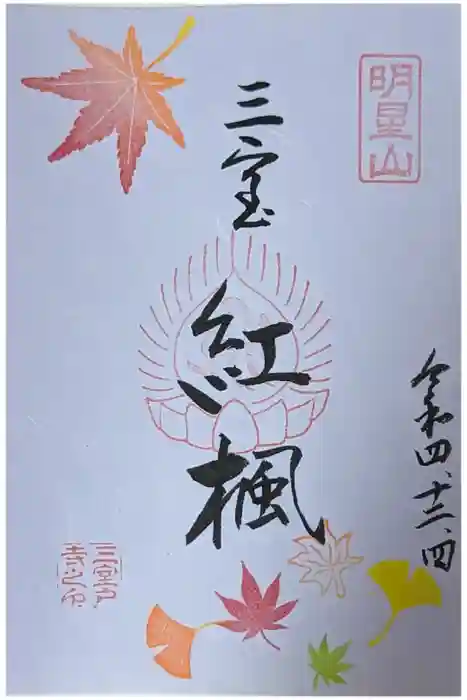 明星山
三室
紅楓
令和四、十二、四
三室戸
寺之印